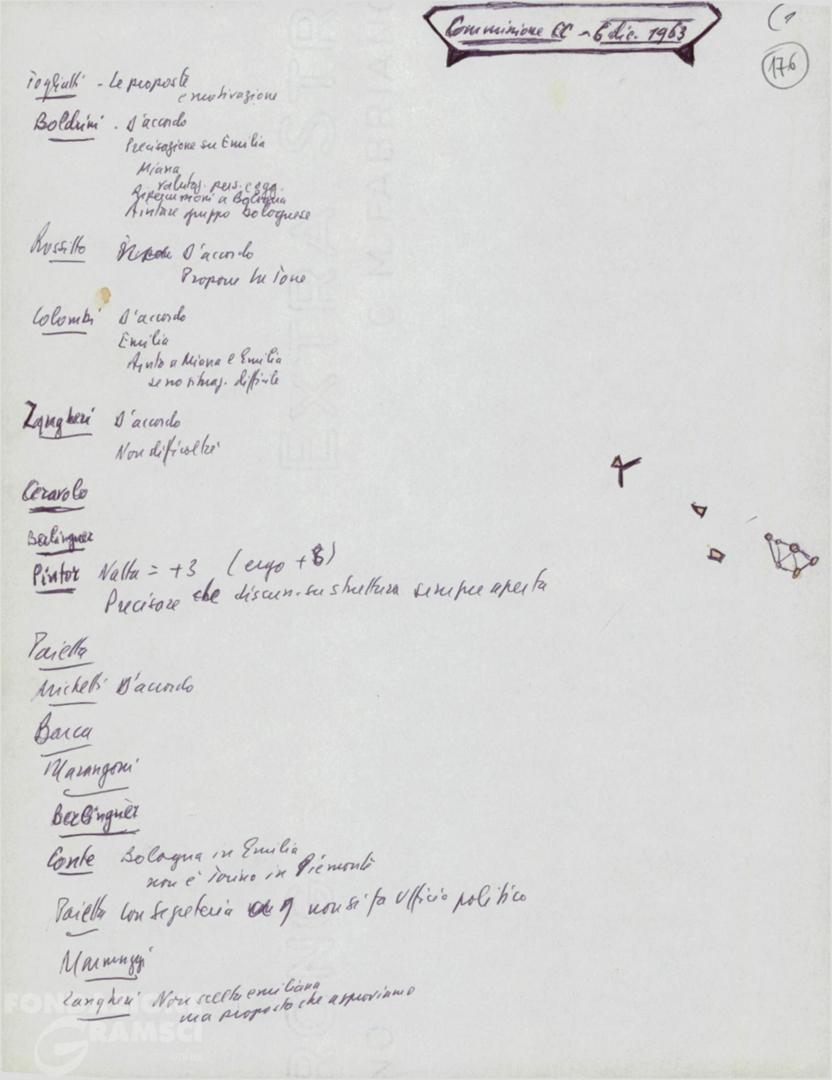 Commissione CC - 6 dic. 1963
(1
176
Togliatti - Le proposte
e motivazione
Boldrini - D'accordo
Precisazione su Emilia
Miana
valutaz. pers. e
Ripercussioni a Bologna
Aiutare gruppo bolognese
Rossitto D'accordo
Propone La Torre
Colombi D'accordo
Emilia
Aiuto a Miana e Emilia
se no situaz. difficile
Zangheri D'accordo
Non difficoltà
Ceravolo
Berlinguer
Pintor Natta = +3 (ergo +6)
Precisare che discuss. su struttura sempre aperta
Paietta
Michetti D'accordo
Barca
Marangoni
Berlinguer
Conte Bologna in Emilia
non è Torino in Piemonte
Paietta Con segreteria a 9 non si fa Ufficio politico
Zangheri Non scelta emiliana
ma proposta che approviamo
FONDAZIONE
GRAMSCI
online